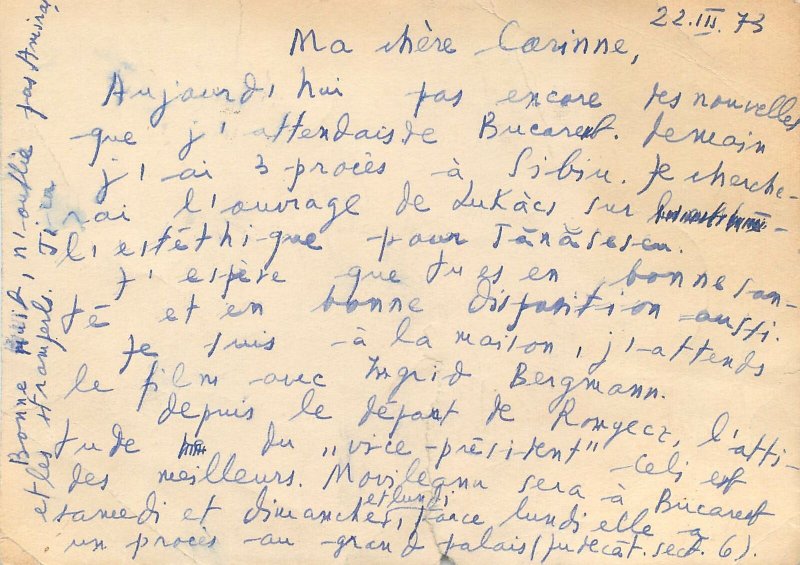 22.III.73
Ma chère Corinne,
Aujourd'hui pas encore des nouvelles
que j'attendais de Bucarest. Demain
j'ai 3 procès à Sibiu. Je cherche-
rai l'ouvrage de Lukàcs sur
l'estéthique pour Tănăsescu.
J'espère que tu es en bonne san-
té et en bonne disposition aussi.
Je suis à la maison, j'attends
le film avec Ingrid Bergmann.
Depuis le départ de Rongecz, l'atti-
tude du „vice-président" Celi est
des meilleurs. Movileanu sera à Bucarest
samedi et dimanche et lundi, parce lundi elle a
un procès au grand palais (judecăt. sect. 6).
Bonne nuit, n'oublie pas
et les